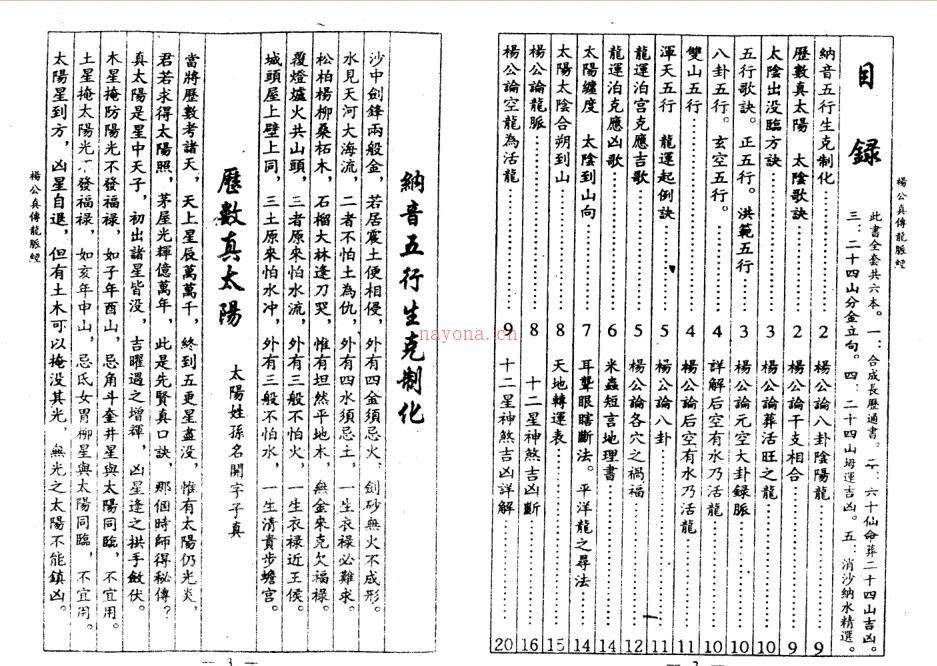 楊公真傳龍脈經
目錄
此書全套共六本。一：合成長歷通書。二、六十仙命葬二十四山吉凶。
三、二十四山分金立句。四、二十四山坶運吉凶。五、消沙納水精選。
納音五行生克制化 2
歷數真太陽 太陰歌訣 2
太陰出没臨方訣 3
五行歌訣。正五行。洪範五行 3
八卦五行。玄空五行。 4
雙山五行 4
渾天五行 龍運起例訣 5
龍運泊宮克應吉歌 5
龍運泊克應凶歌 6
太陽纏度 太陰到山向 7
太陽太陰合朔到山 8
楊公論龍脈 8
楊公論空龍為活龍 9
楊公論八卦陰陽龍 9
楊公論干支相合 9
楊公論葬活旺之龍 10
楊公論元空大卦録脈 10
詳解后空有水乃活龍 10
楊公論后空有水乃活龍 11
楊公論八卦 11
楊公論各穴之禍福 12
米蟲短言地理書 14
耳聾眼瞎斷法。平洋龍之尋法 14
天地轉運表 15
十二星神煞吉凶斷 16
十二星神煞吉凶詳解 20
— 2 —
納音五行生克制化
沙中劍鋒兩般金，若居震土便相侵，外有四金須忌火，劍砂無火不成形。
水見天河大海流，二者不怕土為仇，外有四水須忌土，一生衣禄必難求。
松柏楊柳桑柘木，石榴大林逢刀哭，惟有坦然平地木，無金來克欠福禄。
覆燈爐火共山頭，三者原來怕水流，外有三般不怕火，一生衣禄近王侯。
城頭屋上壁上同，三土原來怕水冲，外有三般不怕水，一生清貴步蟾宮。
歷數真太陽 太陽姓孫名開字子真
當將歷數考諸天，天上星辰萬萬千，終到五更星盡没，惟有太陽仍光炎，
君若求得太陽照，茅屋光輝億萬年，此是先賢真口訣，那個時師得秘傳？
真太陽是星中天子，初出諸星皆没，吉曜遇之增輝，凶星逢之拱手斂伏。
木星掩防陽光不發福禄，如子年酉山，忌角斗奎井星與太陽同臨，不宜用。
土星掩太陽光不發福禄，如亥年申山，忌氐女胃柳星與太陽同臨，不宜用。
太陽星到方，凶星自退，但有土木可以掩没其光，無光之太陽不能鎮凶。
楊公真傳龍脈經
— 3 —
nayona.cn